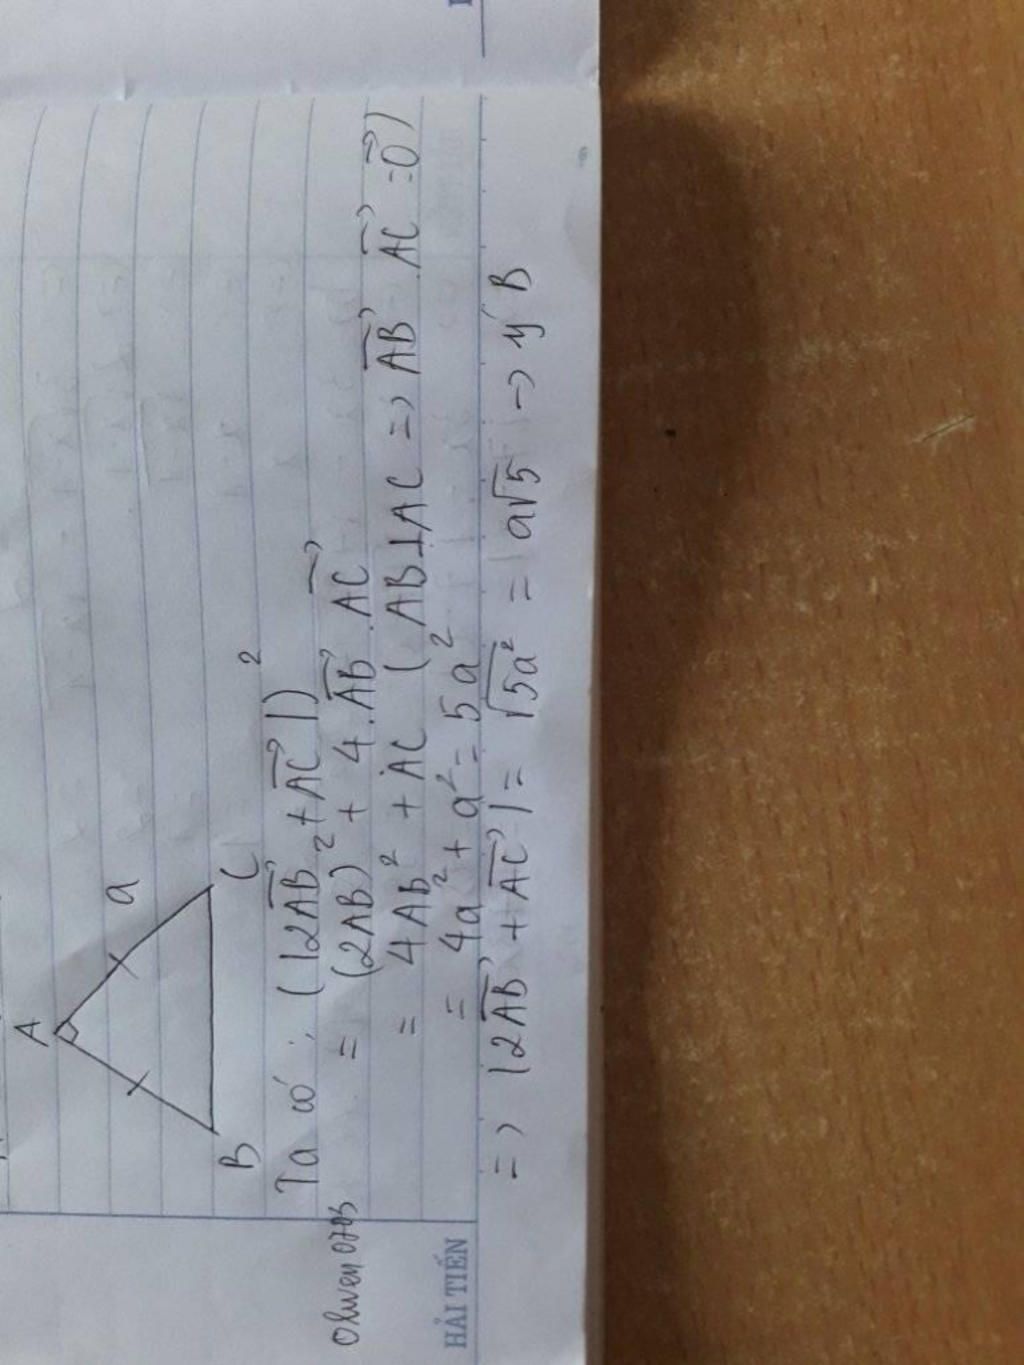 A
a
B
C
Ta có: (|2\overrightarrow{AB} + \overrightarrow{AC}|)²
= (2AB)² + 4.\overrightarrow{AB}.\overrightarrow{AC}
= 4AB² + AC (AB⊥AC => \overrightarrow{AB}.\overrightarrow{AC} = \overrightarrow{0})
= 4a² + a² = 5a²
=> |2\overrightarrow{AB} + \overrightarrow{AC}| = √5a² = a√5 → ý B
Olwen0703
HẢI TIẾN